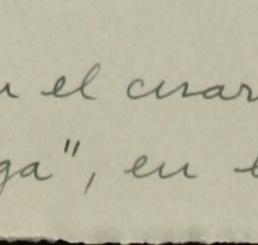 el cuar
ga", en